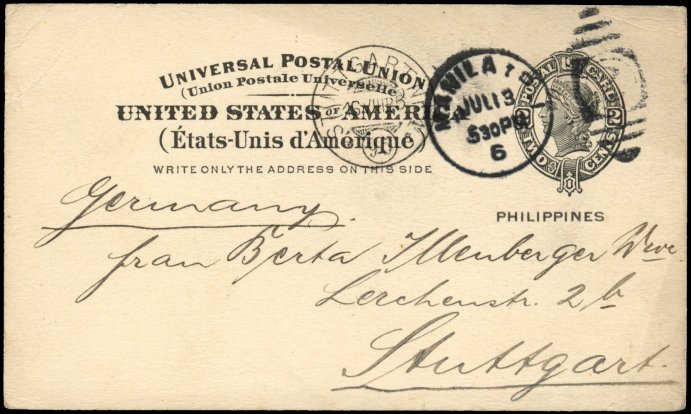 UNIVERSAL POSTAL UNION
(Union Postale Universelle)
UNITED STATES OF AMERICA
(États-Unis d'Amérique)
WRITE ONLY THE ADDRESS ON THIS SIDE
STUTTGART
MANILA
JUL 13
530 PM
6
POSTAL CARD
TWO CENTS
PHILIPPINES
Germany.
Frau Berta Illenberger Wwe
Lerchenstr. 2b
Stuttgart.